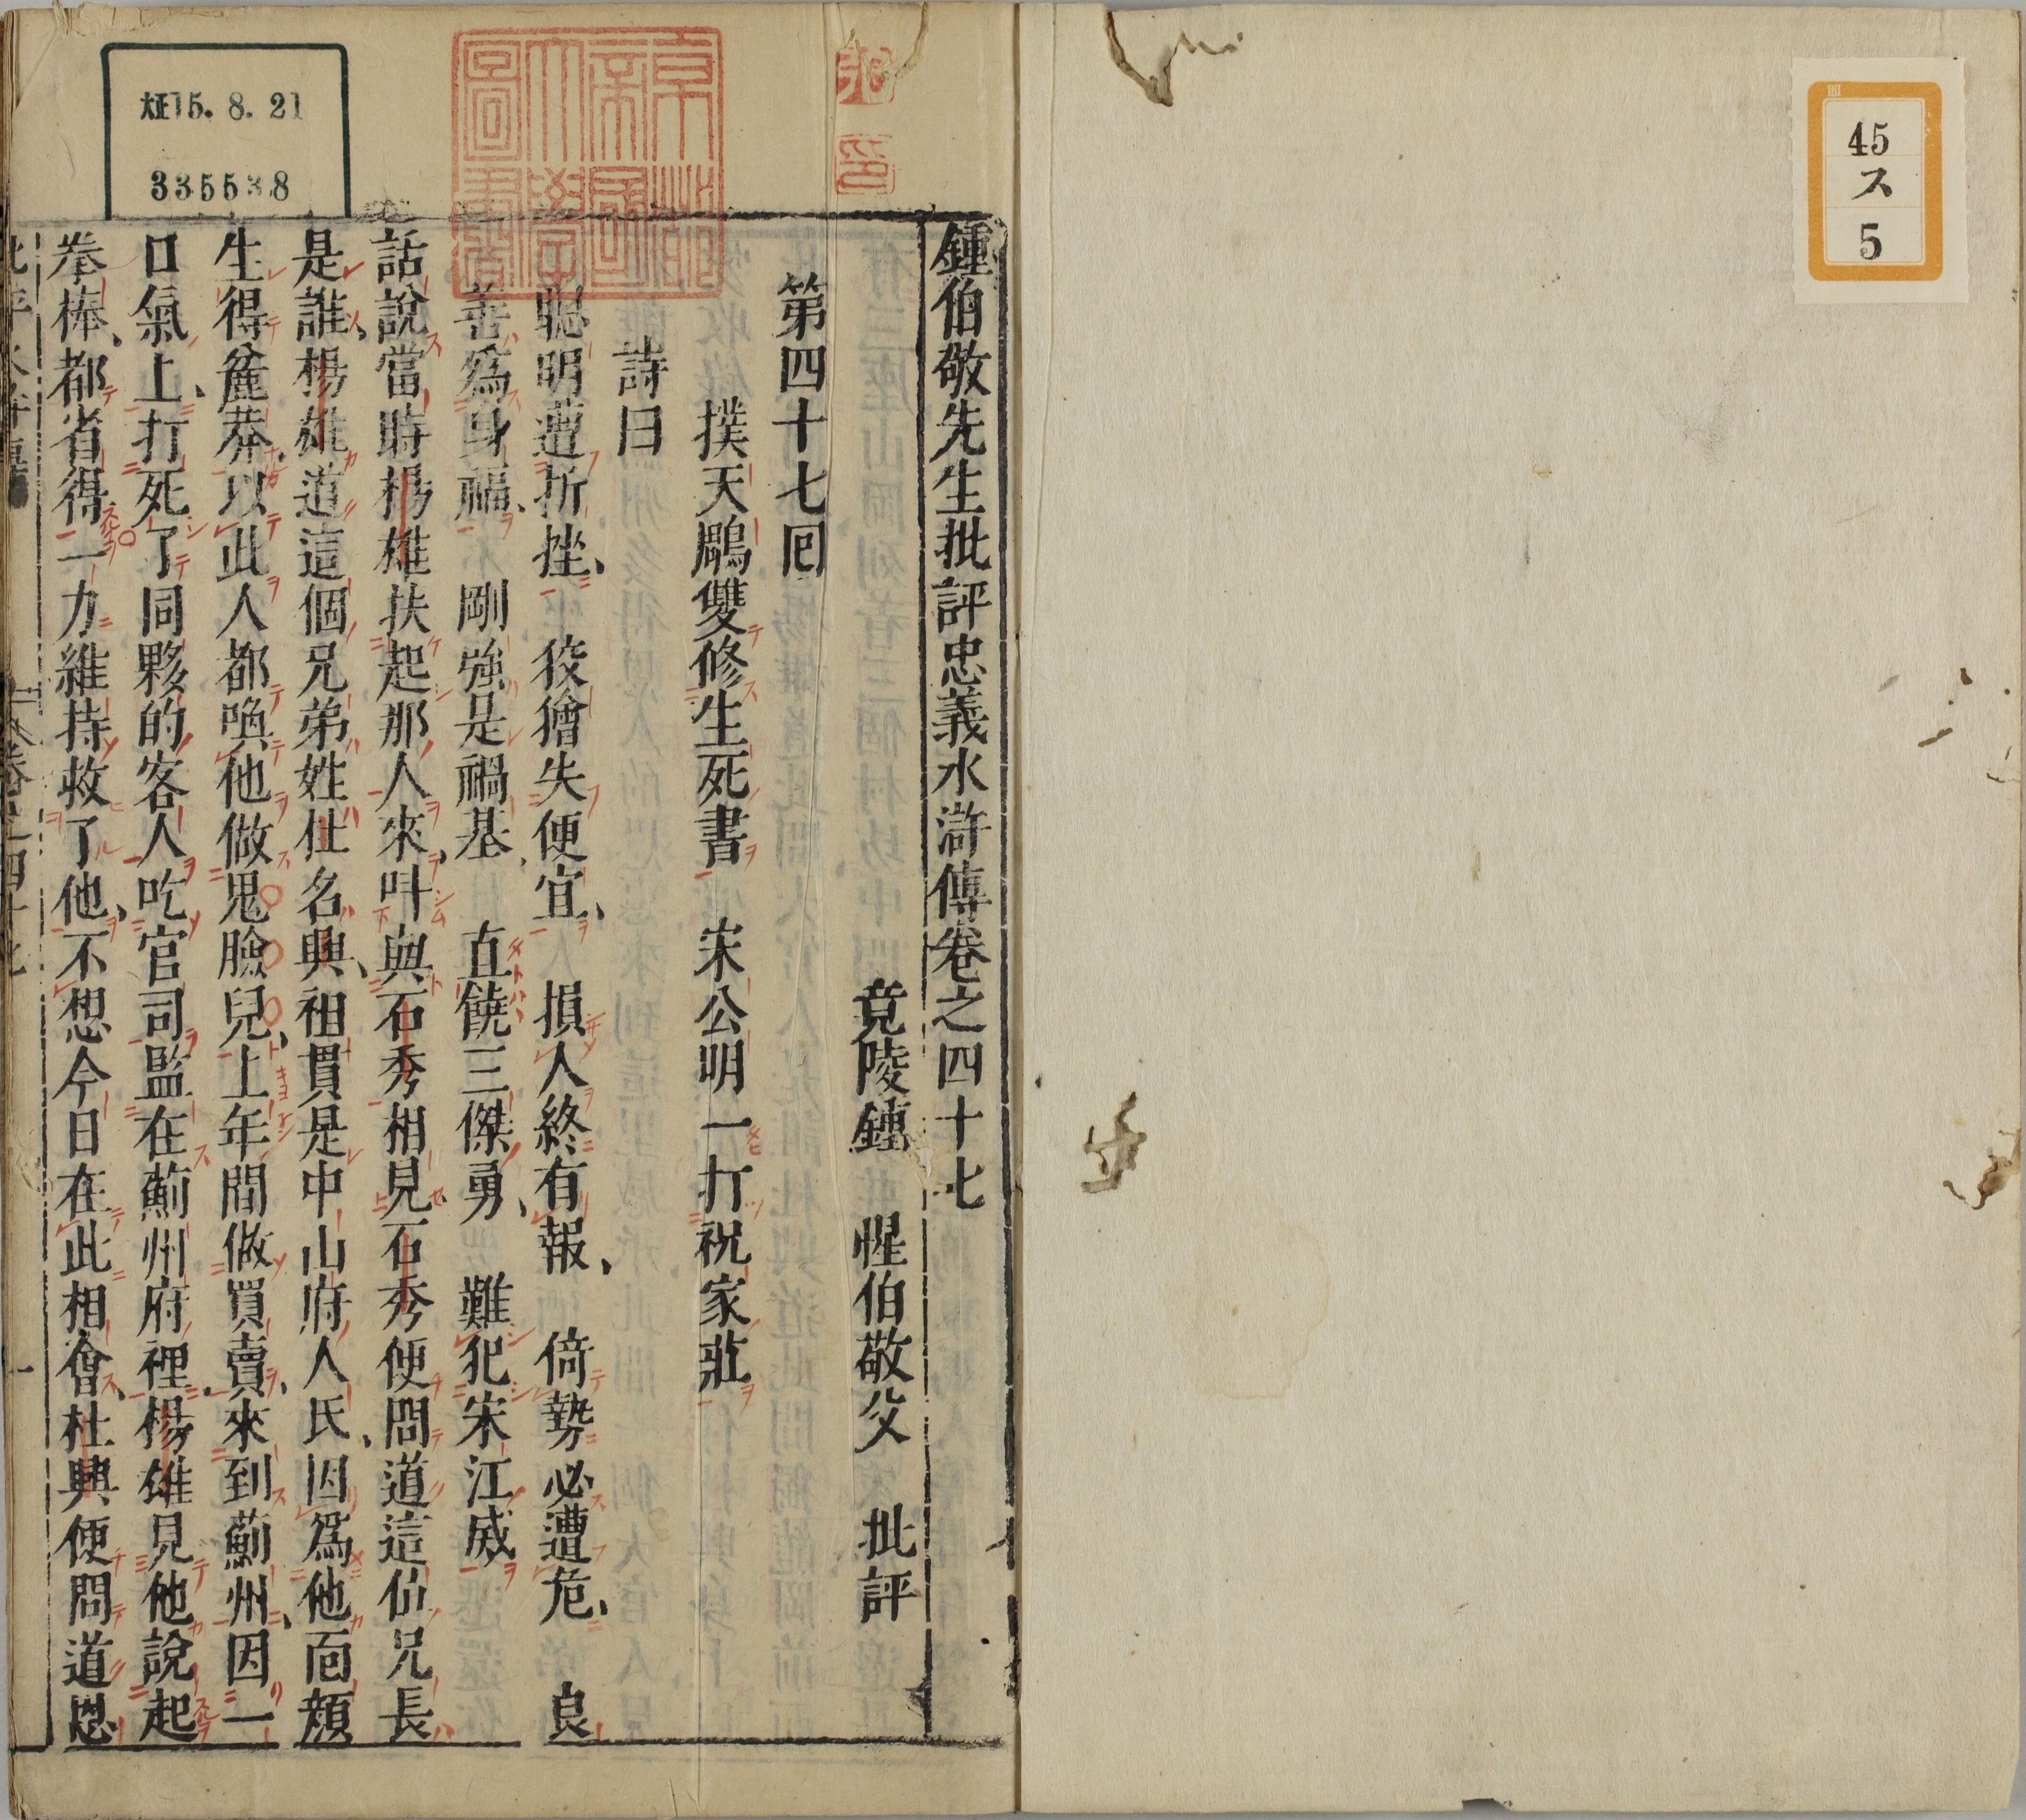 45
ス
5
鍾伯敬先生批評忠義水滸傳卷之四十七
竟陵鍾 惺伯敬父 批評
第四十七囘
撲天鵰雙修生死書 宋公明一打祝家莊
詩曰
聰明遭折挫、 狡獪失便宜、 損人終有報、 倚勢必遭危、 良
善為身福、 剛強是禍基、 直饒三傑勇、 難犯宋江威
話說當時楊雄扶起那人來、呌與石秀相見、石秀便問道這位兄長
是誰、楊雄道這個兄弟姓杜名興、祖貫是中山府人氏、因為他面顏
生得麄莽、以此人都喚他做鬼臉兒、上年間做買賣、來到薊州、因一
口氣上、打死了同夥的客人吃官司監在薊州府裡、楊雄見他說起
拳棒、都省得一力維持救了他、不想今日在此相會、杜興便問道恩
大正15.8.21
335538
京都帝國大學圖書